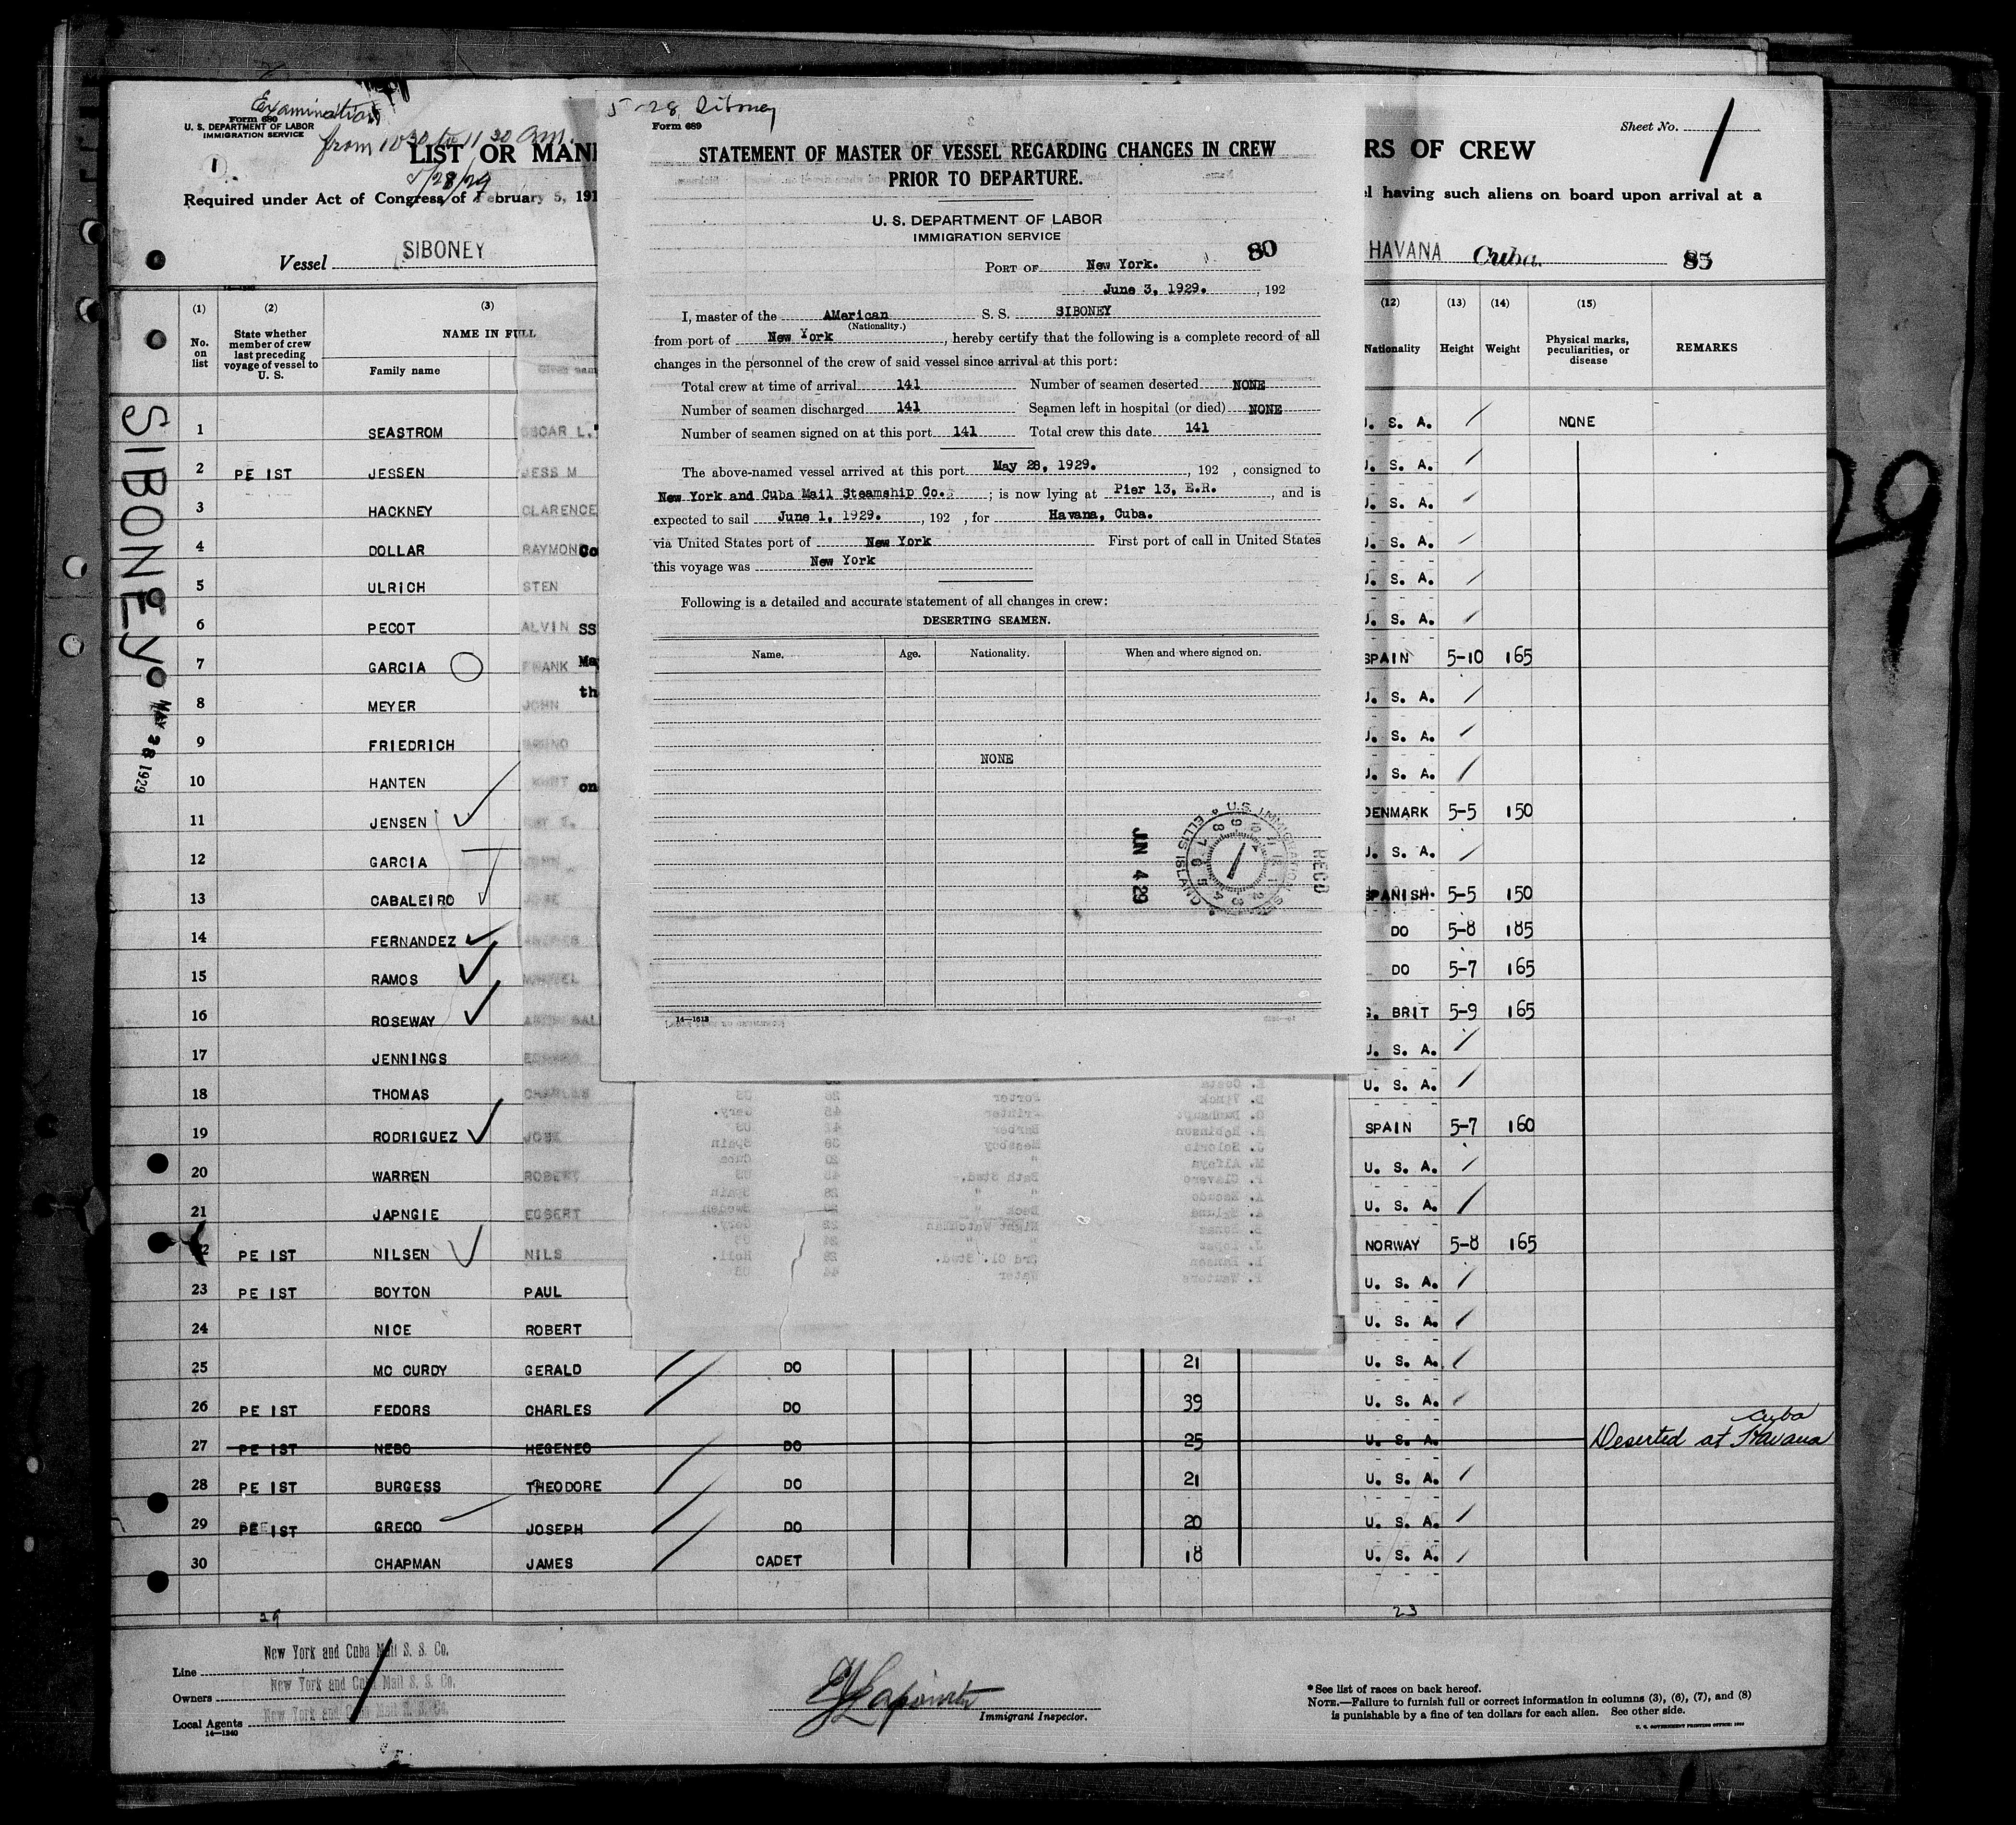 Examination
from 10 30 to 11 30 am.
5/28/29
Form 680
U. S. DEPARTMENT OF LABOR
IMMIGRATION SERVICE
1
LIST OR MANI
RS OF CREW
Sheet No. 1
Required under Act of Congress of February 5, 191
l having such aliens on board upon arrival at a
Vessel SIBONEY
HAVANA Cuba. 85
SIBONEY
MAY 28 1929
29
5-28 Siboney
Form 689
STATEMENT OF MASTER OF VESSEL REGARDING CHANGES IN CREW
PRIOR TO DEPARTURE.
U. S. DEPARTMENT OF LABOR
IMMIGRATION SERVICE
80
PORT OF New York.
June 3, 1929. , 192
I, master of the AMerican S. S. SIBONEY
(Nationality.)
from port of New York , hereby certify that the following is a complete record of all
changes in the personnel of the crew of said vessel since arrival at this port:
Total crew at time of arrival 141 Number of seamen deserted NONE
Number of seamen discharged 141 Seamen left in hospital (or died) NONE
Number of seamen signed on at this port 141 Total crew this date 141
The above-named vessel arrived at this port May 28, 1929. , 192 , consigned to
New York and Cuba Mail Steamship Co. ; is now lying at Pier 13, E.R. , and is
expected to sail June 1, 1929. , 192 , for Havana, Cuba.
via United States port of New York First port of call in United States
this voyage was New York
Following is a detailed and accurate statement of all changes in crew:
DESERTING SEAMEN.
Name. Age. Nationality. When and where signed on.
NONE
JUN 4 29
RECD
U.S. IMMIGRATION SER
ELLIS ISLAND
14—1613
(1) (2) (3) (12) (13) (14) (15)
No. on list
State whether member of crew last preceding voyage of vessel to U. S.
NAME IN FULL
Family name Given nam
Nationality Height Weight Physical marks, peculiarities, or disease REMARKS
1 SEASTROM OSCAR L. U. S. A. NONE
2 PE IST JESSEN JESS M U. S. A.
3 HACKNEY CLARENCE U. S. A.
4 DOLLAR RAYMOND Co U. S. A.
5 ULRICH STEN U. S. A.
6 PECOT ALVIN SS U. S. A.
7 GARCIA FRANK Ma SPAIN 5-10 165
th
8 MEYER JOHN U. S. A.
9 FRIEDRICH U. S. A.
10 HANTEN on U. S. A.
11 JENSEN DENMARK 5-5 150
12 GARCIA U. S. A.
13 CABALEIRO JOSE SPANISH 5-5 150
14 FERNANDEZ DO 5-8 185
15 RAMOS MANUEL DO 5-7 165
16 ROSEWAY G. BRIT 5-9 165
17 JENNINGS U. S. A.
18 THOMAS CHARLES U. S. A.
19 RODRIGUEZ JOSE SPAIN 5-7 160
20 WARREN ROBERT U. S. A.
21 JAPNGIE EGBERT U. S. A.
22 PE IST NILSEN NILS NORWAY 5-8 165
23 PE IST BOYTON PAUL U. S. A.
24 NICE ROBERT U. S. A.
25 MC CURDY GERALD DO 21 U. S. A.
26 PE IST FEDORS CHARLES DO 39 U. S. A.
27 PE IST NEBO HEGENEO DO 25 U. S. A. Deserted at Havana Cuba
28 PE IST BURGESS THEODORE DO 21 U. S. A.
29 PE IST GRECO JOSEPH DO 20 U. S. A.
30 CHAPMAN JAMES CADET 18 U. S. A.
29 23
Line New York and Cuba Mail S. S. Co.
Owners New York and Cuba Mail S. S. Co.
Local Agents New York and Cuba Mail S. S. Co.
14—1240
Immigrant Inspector.
* See list of races on back hereof.
NOTE.—Failure to furnish full or correct information in columns (3), (6), (7), and (8)
is punishable by a fine of ten dollars for each alien. See other side.